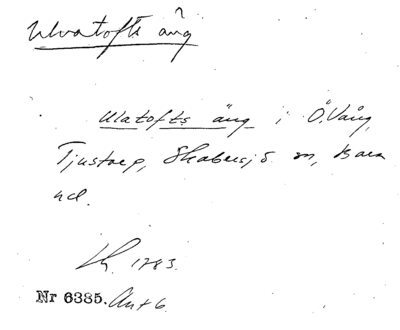 Ulvatofts äng
Ulatofts äng i Ö. Vång,
Tjustorp, Skabersjö sn, Bara
hd.
LA. 1783.
Nr 6385. Akt 6.